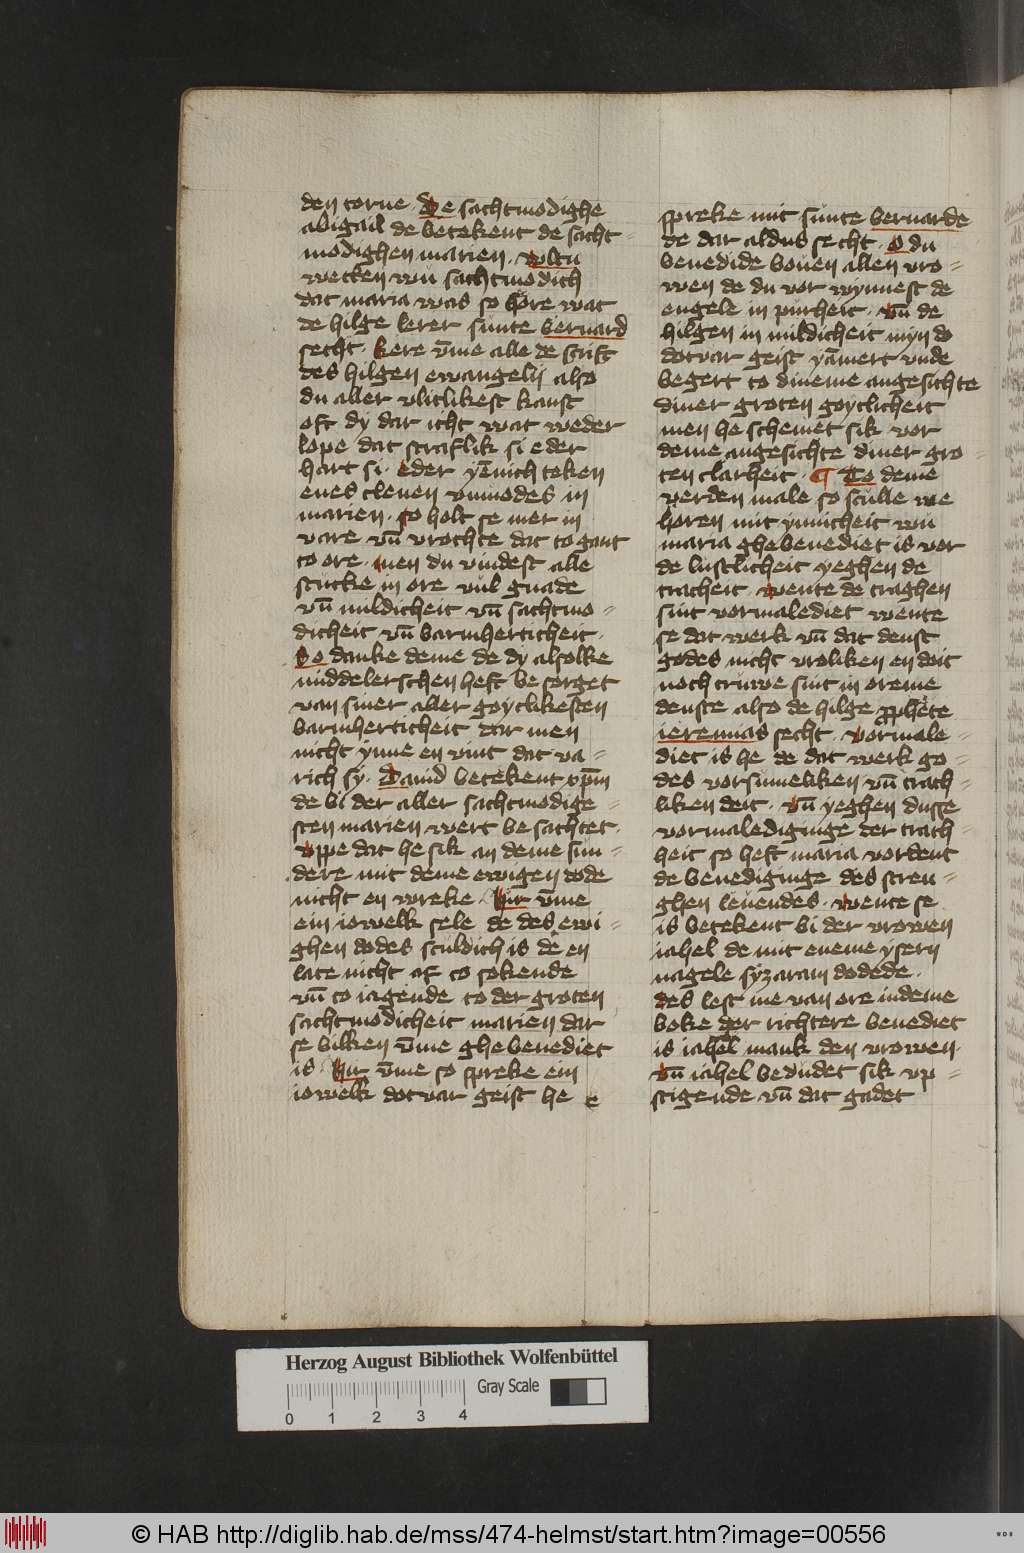 den torne · De sachtmodighe
abigail de betekent de sacht-
modighen marien · wltu
wetten wu sachtmodich
dat maria was so hore wat
de hilge lerer sunte bernard
secht · kere vm̄e alle de scrift
des hilgen ewangelij also
du aller vlitlikest kanst
oft dy dar icht wat weder
lope dat straflik si eder
hart si · eder yēnich teken
enes clenen vnmodes in
marien · so holt se mer in
vare vn̄ vrochte dat to gant
to ore · men du vindest alle
stucke in ore vul gnade
vn̄ mildicheit vn̄ sachtmo=
dicheit vn̄ barmherticheit ·
So danke deme de dy alsolke
middelerschen heft be sorget
van siner aller gotlikesten
barmherticheit dar men
nicht ynne en vint dat va=
rich sy · Dauid betekent xp̄m
de bi der aller sachtmodige=
sten marien wert be sachtet ·
vppe dat he sik an deme sun=
dere mit deme ewigen dode
nicht en wreke · Hir vm̄e
ein iowelk sele de des ewi=
ghen dodes sculdich is de en
late nicht af to sokende
vn̄ to iagende to der groten
sachtmodicheit marien dar
se bilken vm̄e ghebenediet
is · Hir vm̄e so spreke ein
iowelk dotvar geist he
spreke mit sunte bernarde
de dar aldus secht · O du
benedide bouen allen vro=
wen de du vor wynnest de
engele in purheit · vn̄ de
hilgen in mildicheit myn do
dotvar geist yām̄ert vnde
begert to dineme angesichte
diner groten gotlicheit
men he schemet sik vor
deme angesichte diner gro=
ten clarheit · ¶ To deme
verden male so sculle we
horen mit ynnicheit wu
maria ghebenediet is vor
de lustlicheit yeghen de
tracheit · wente de traghen
sint vormalediet wente
se dat werk vn̄ dat denst
godes nicht vroliken en doit
noch truwe sint in oreme
denste also de hilge pphete
ieremias secht · vormale=
diet is he de dat werk go=
des vorsumeliken vn̄ trach=
liken deit · vn̄ yeghen dusse
vormalediginge der trach=
heit so heft maria vordent
de benediginge des stren=
ghen leuendes · wente se
is betekent bi der vrowen
iahel de mit eneme ysern
nagele syzaram dodede ·
des lest me van ore in deme
boke der richtere benediet
is iahel mank den vrowen ·
vn̄ iahel bedudet sik vp=
stigende vn̄ dat gadet
Herzog August Bibliothek Wolfenbüttel
Gray Scale
0 1 2 3 4
© HAB http://diglib.hab.de/mss/474-helmst/start.htm?image=00556